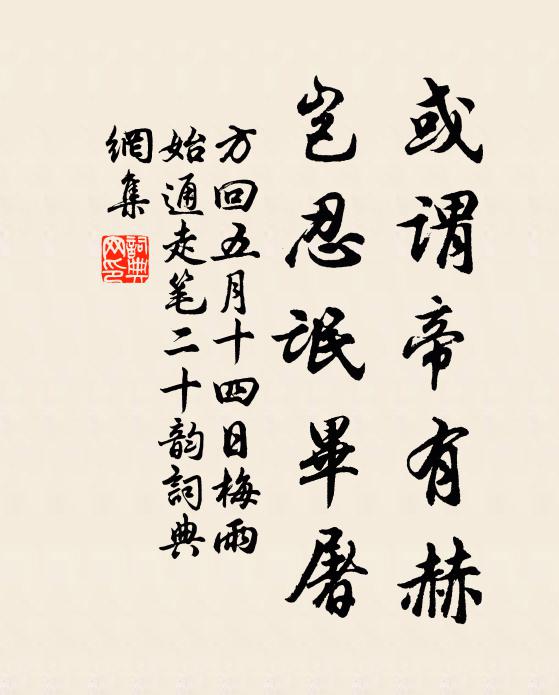 或謂帝有赫
岂忍氓畢屠
方回五月十四日梅雨
始通走笔二十韵詞典
網集
詞典
网印